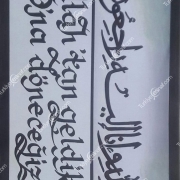 اليه راجعون
llah'tan geldik
O'na döneceğiz